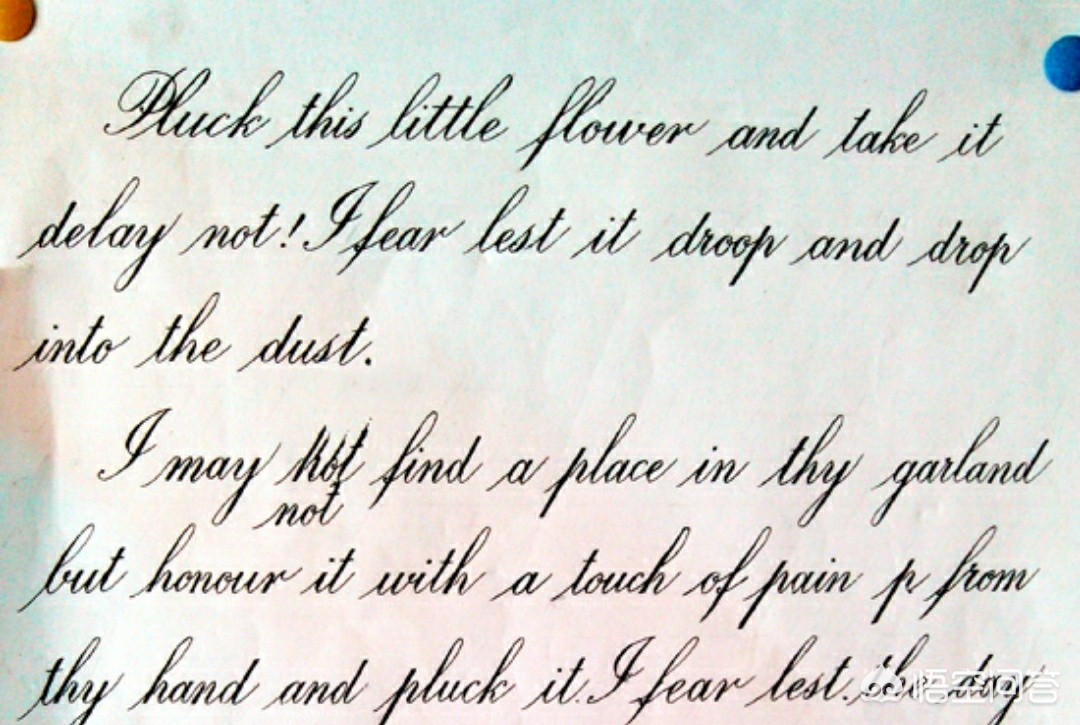 Pluck this little flower and take it
delay not! I fear lest it droop and drop
into the dust.
I may not find a place in thy garland
not
but honour it with a touch of pain p from
thy hand and pluck it. I fear lest the day
悟空问答